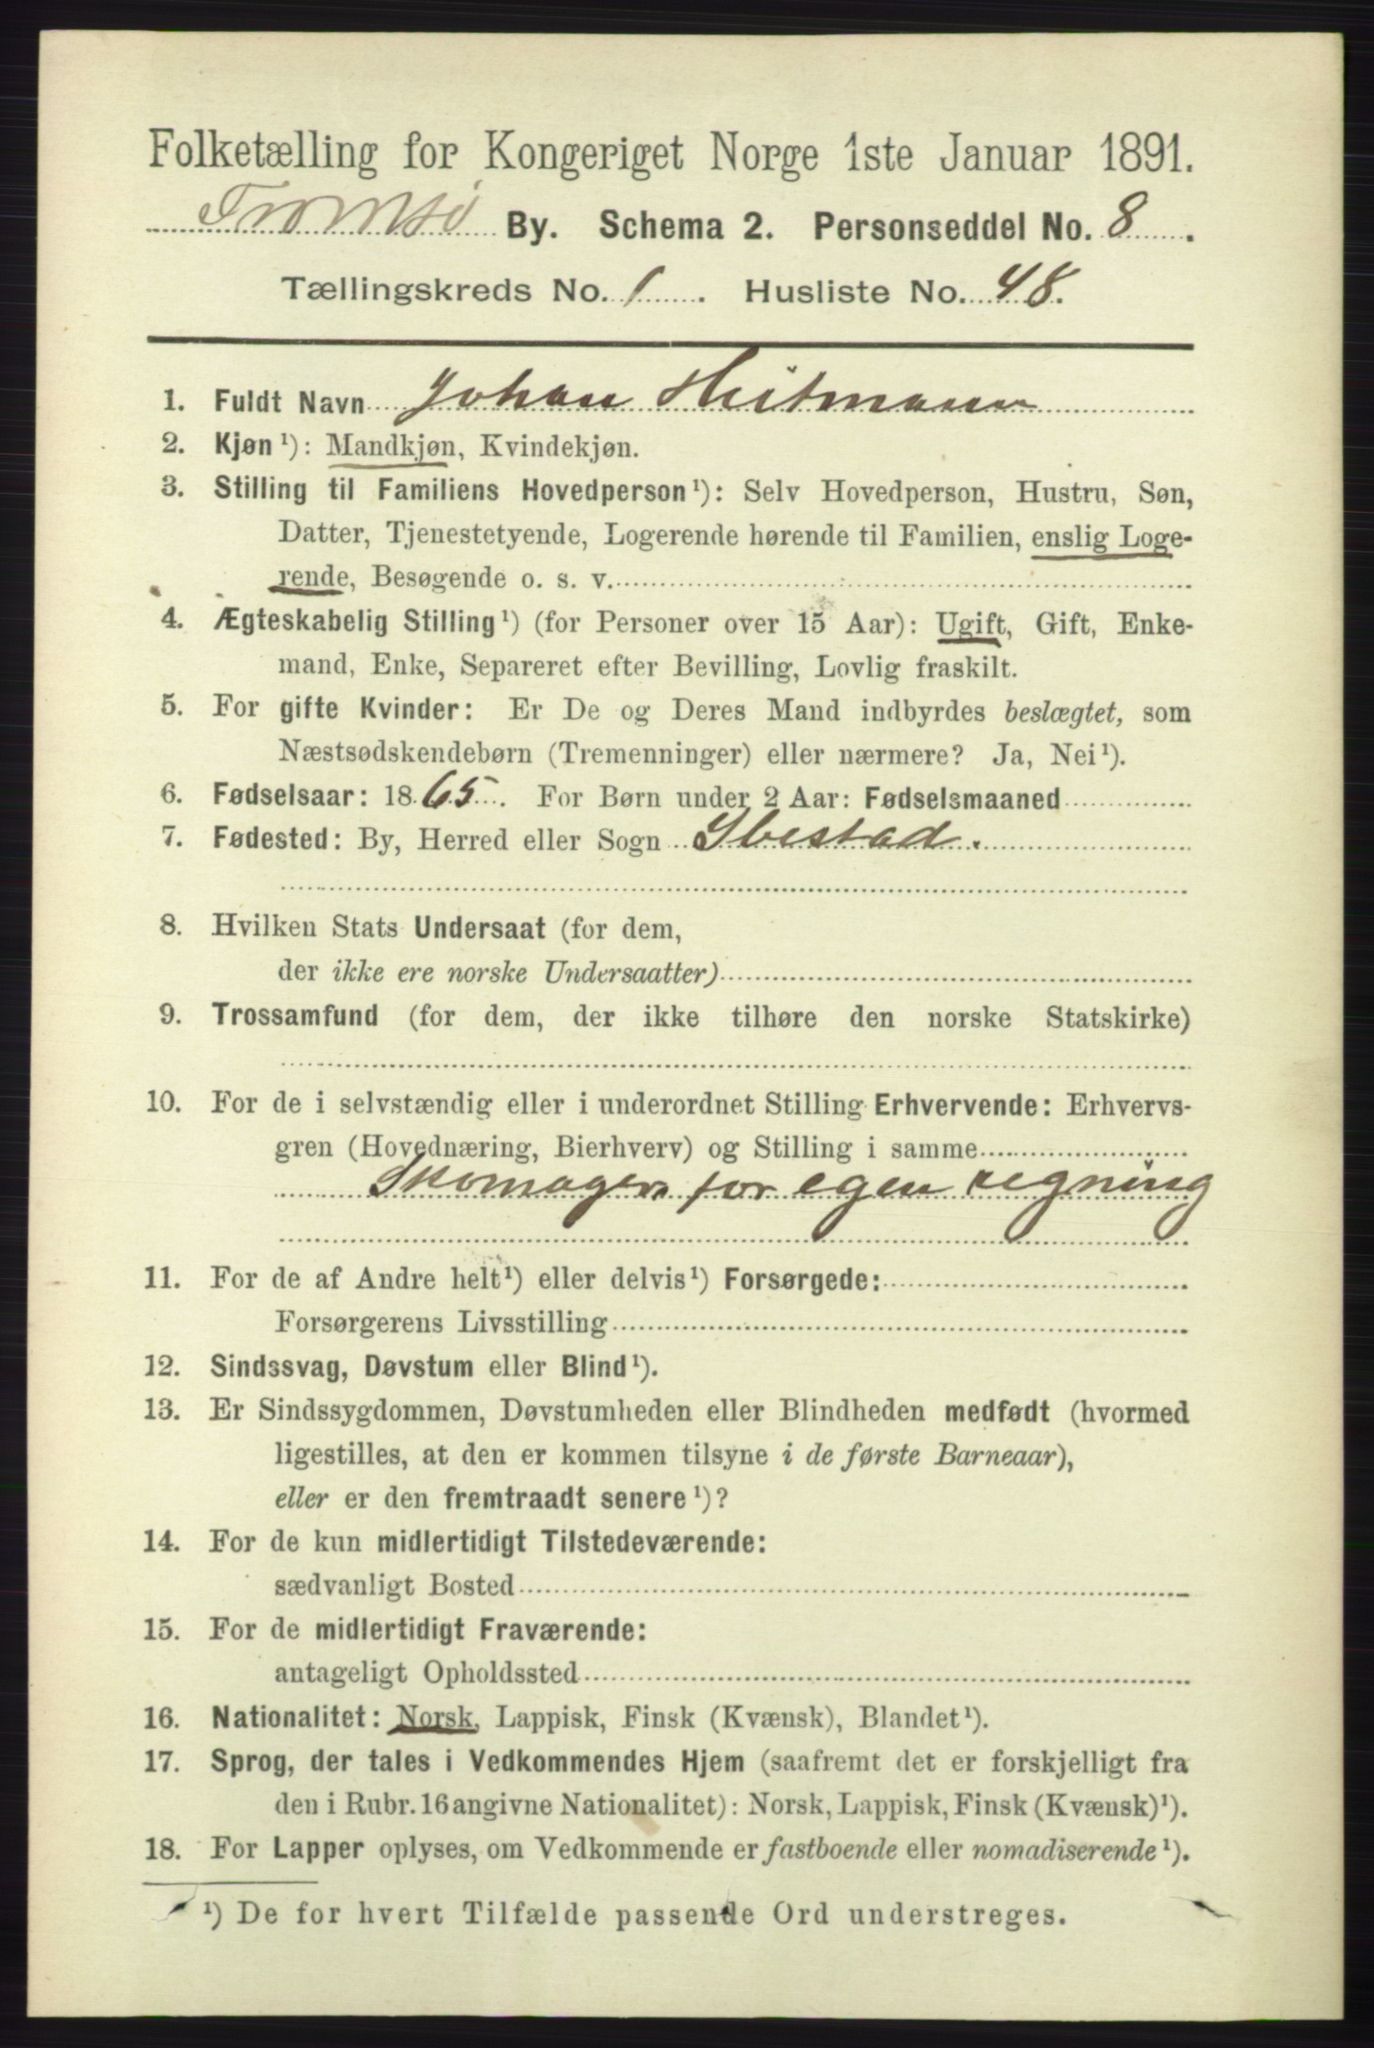 Folketælling for Kongeriget Norge 1ste Januar 1891.
Tromsø By. Schema 2. Personseddel No. 8.
Tællingskreds No. 1. Husliste No. 48.
1. Fuldt Navn Johan Heitmann
2. Kjøn¹): Mandkjøn, Kvindekjøn.
3. Stilling til Familiens Hovedperson¹): Selv Hovedperson, Hustru, Søn,
Datter, Tjenestetyende, Logerende hørende til Familien, enslig Loge-
rende, Besøgende o. s. v.
4. Ægteskabelig Stilling¹) (for Personer over 15 Aar): Ugift, Gift, Enke-
mand, Enke, Separeret efter Bevilling, Lovlig fraskilt.
5. For gifte Kvinder: Er De og Deres Mand indbyrdes beslægtet, som
Næstsødskendebørn (Tremenninger) eller nærmere? Ja, Nei¹).
6. Fødselsaar: 1865. For Børn under 2 Aar: Fødselsmaaned
7. Fødested: By, Herred eller Sogn Ibestad.
8. Hvilken Stats Undersaat (for dem,
der ikke ere norske Undersaatter)
9. Trossamfund (for dem, der ikke tilhøre den norske Statskirke)
10. For de i selvstændig eller i underordnet Stilling Erhvervende: Erhvervs-
gren (Hovednæring, Bierhverv) og Stilling i samme
Skomager for egen regning
11. For de af Andre helt¹) eller delvis¹) Forsørgede:
Forsørgerens Livsstilling
12. Sindssvag, Døvstum eller Blind¹).
13. Er Sindssygdommen, Døvstumheden eller Blindheden medfødt (hvormed
ligestilles, at den er kommen tilsyne i de første Barneaar),
eller er den fremtraadt senere¹)?
14. For de kun midlertidigt Tilstedeværende:
sædvanligt Bosted
15. For de midlertidigt Fraværende:
antageligt Opholdssted
16. Nationalitet: Norsk, Lappisk, Finsk (Kvænsk), Blandet¹).
17. Sprog, der tales i Vedkommendes Hjem (saafremt det er forskjelligt fra
den i Rubr. 16 angivne Nationalitet): Norsk, Lappisk, Finsk (Kvænsk)¹).
18. For Lapper oplyses, om Vedkommende er fastboende eller nomadiserende¹).
¹) De for hvert Tilfælde passende Ord understreges.